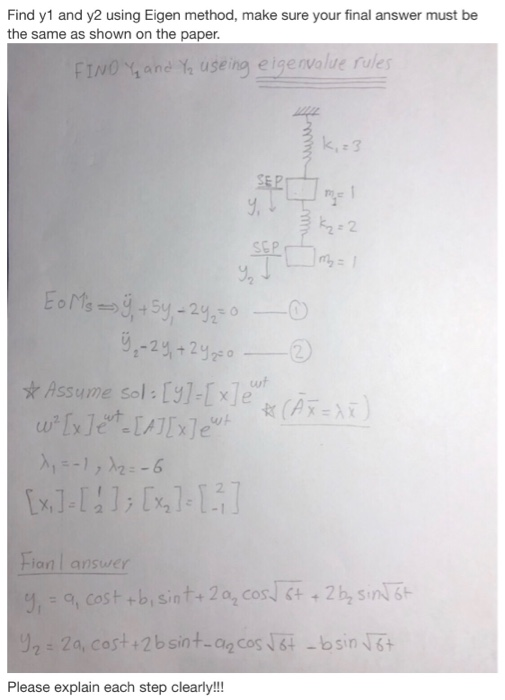 Find y1 and y2 using Eigen method, make sure your final answer must be
the same as shown on the paper.
FIND Y₁ and Y₂ useing eigenvalue rules
k₁=3
SEP
y₁ m₁=1
k₂=2
SEP
y₂ m₂=1
EoMs ⇒ ÿ₁+5y₁-2y₂=0 — ①
ÿ₂-2y₁+2y₂=0 — ②
☆ Assume sol: [y]=[x]e^wt
w²[x]e^wt=[A][x]e^wt ☆ (Āx̄=λx̄)
λ₁=-1, λ₂=-6
[x₁]=[1 2]; [x₂]=[2 -1]
Fianl answer
y₁ = a₁ cost+b₁ sint+2a₂ cos√6t + 2b₂ sin√6t
y₂ = 2a₁ cost+2b sint-a₂ cos√6t - b sin√6t
Please explain each step clearly!!!